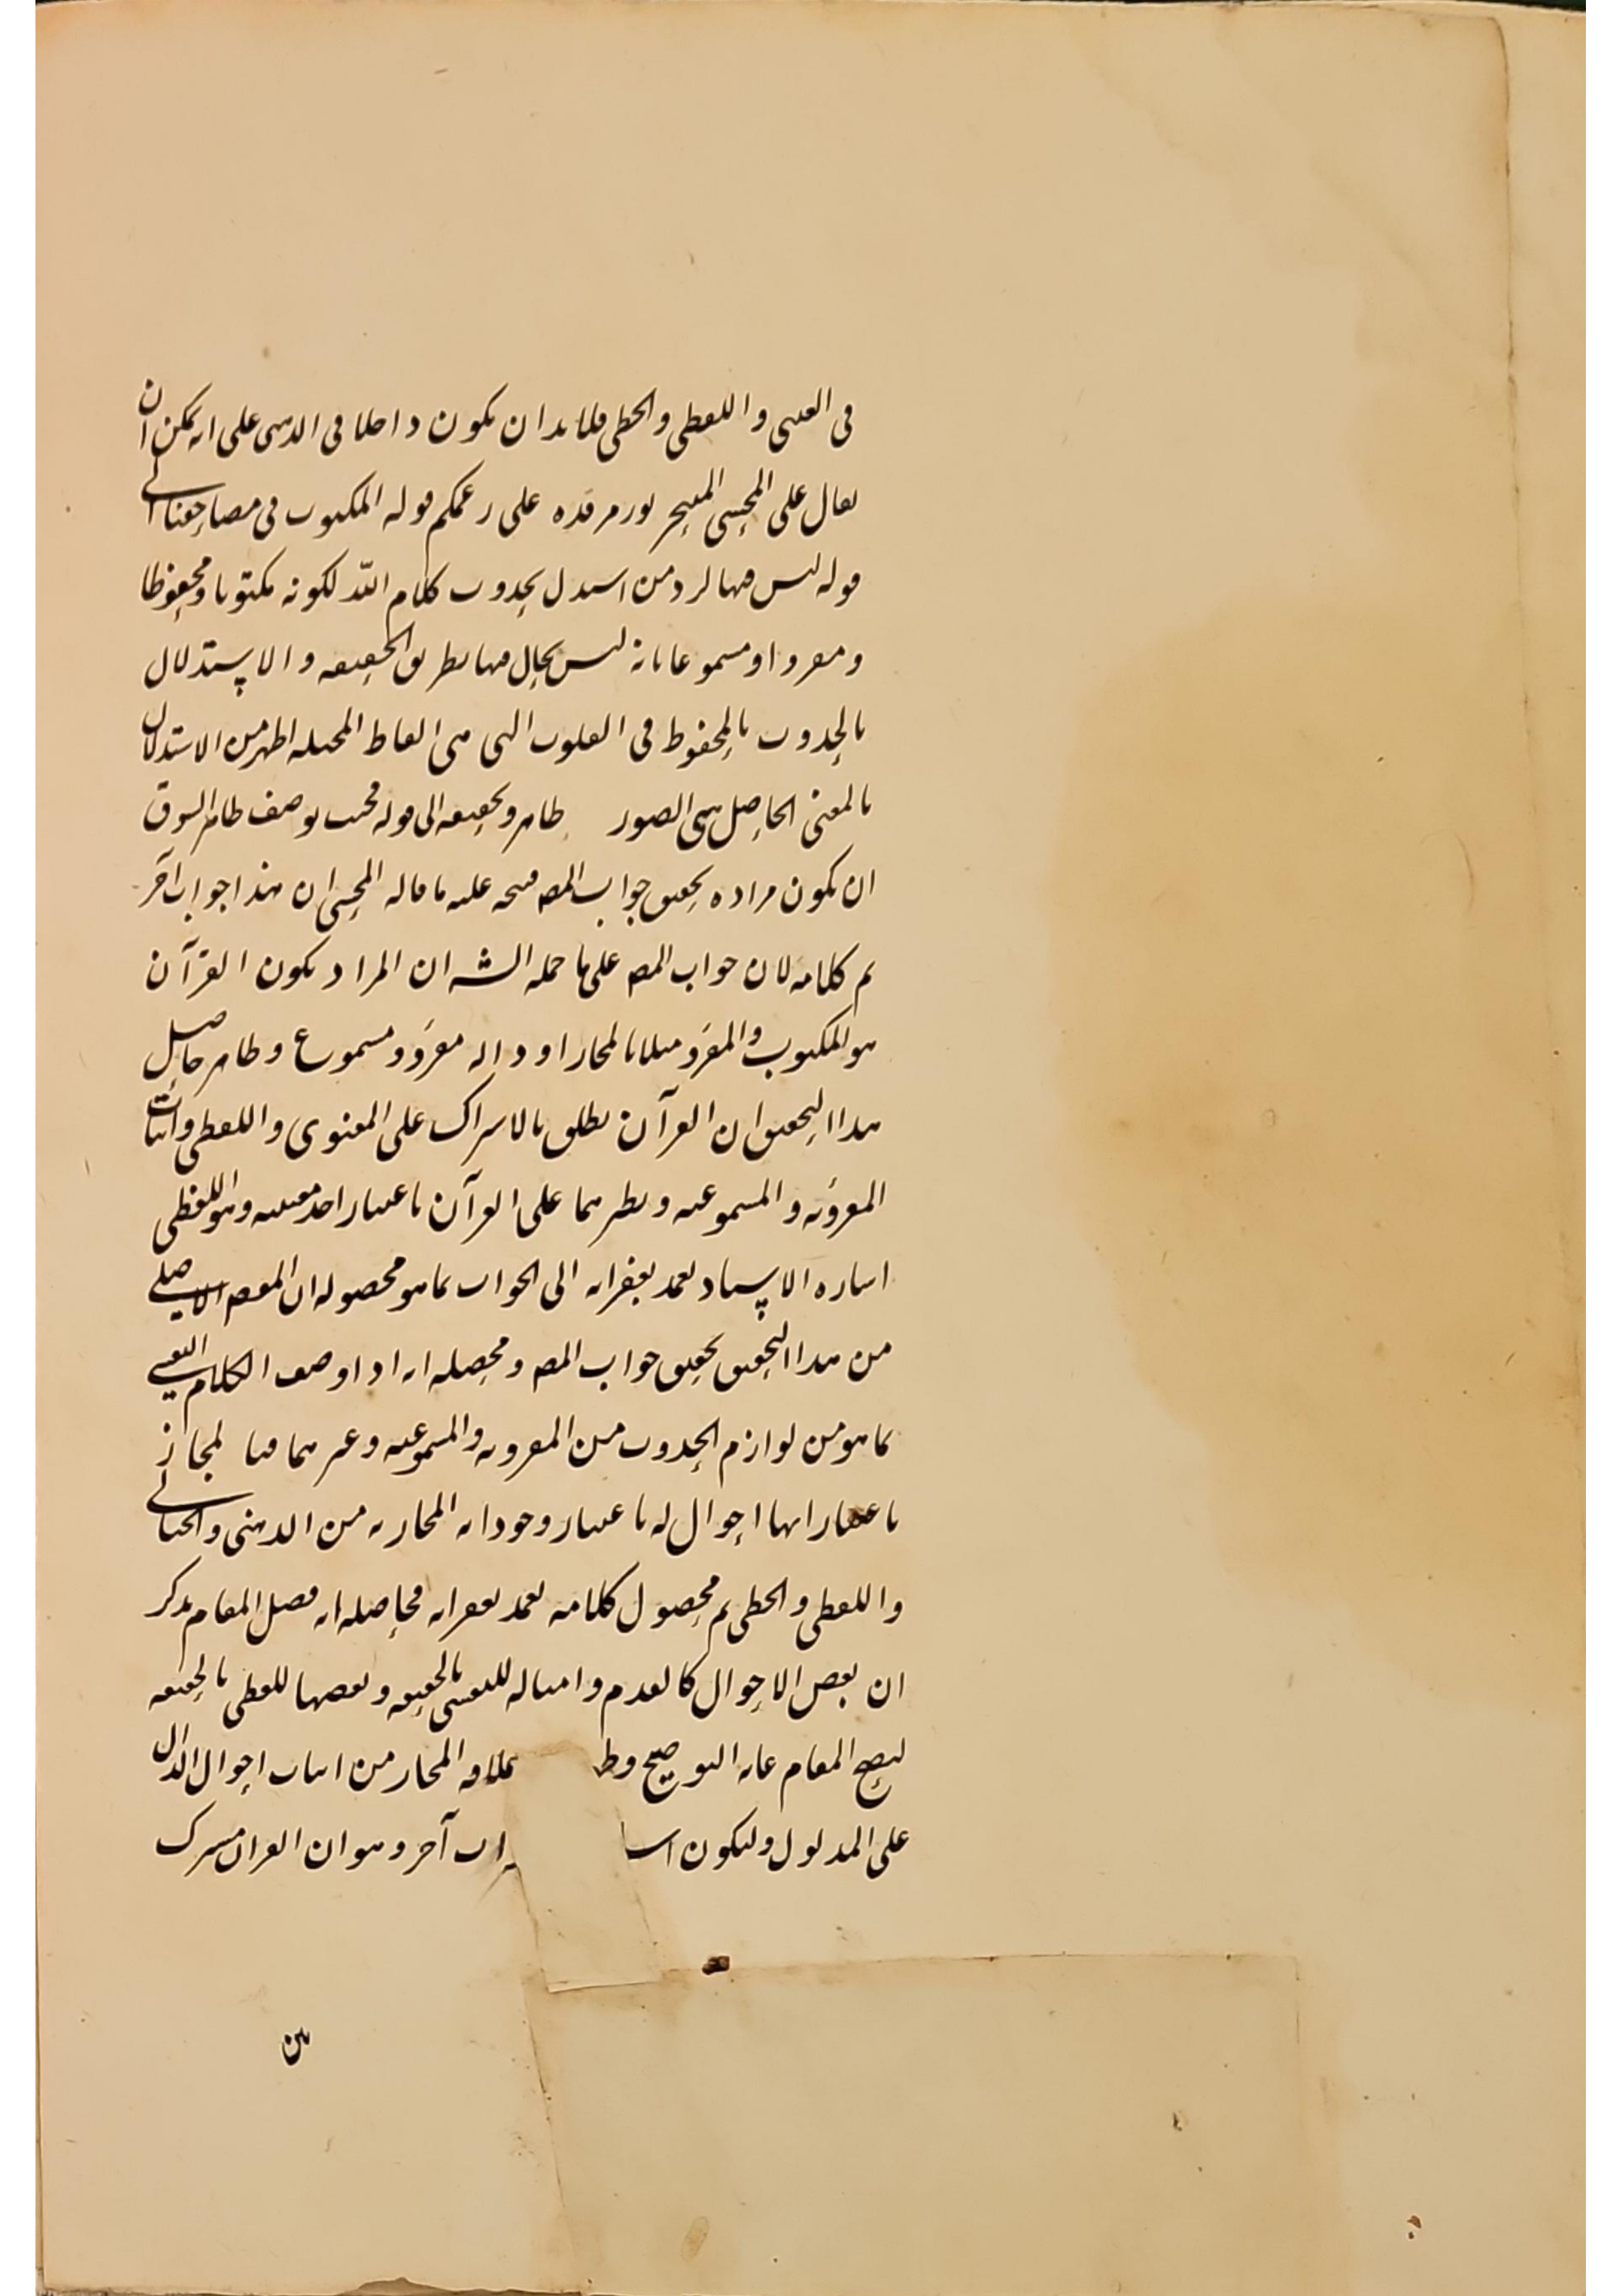 في العيني واللفظي والخطي فلا بد ان يكون داخلا في الذهني على انه يمكن ان
يقال على المحشي المتبحر نور مرقده على زعمكم قوله المكتوب في مصاحفنا الى
قوله ليس فيها لرد من استدل بحدوث كلام الله لكونه مكتوبا ومحفوظا
ومقروا ومسموعا بانه ليس بحال فيها بطريق الحقيقه والاستدلال
بالحدوث بالمحفوظ في القلوب التي هي الفاظ المخيله اظهر من الاستدلال
بالمعنى الحاصل هي الصور ظاهر وتحقيقه الى قوله محب يوصف ظاهر السوق
ان يكون مراده تحقيق جواب المص فتحه عليه ما قاله المحشي ان هذا جواب آخر
تم كلامه لان جواب المص على ما حمله الشه ان المراد بكون القرآن
هو المكتوب والمقرؤ مثلا بالمجاز او داله مقرؤ ومسموع وظاهر حاصل
هذا التحقيق ان القرآن يطلق بالاشتراك على المعنوي واللفظي واثبات
المقروئيه والمسموعيه ونظيرهما على القرآن باعتبار احد معنييه وهو اللفظي
اشاره الاستاد تغمد بغفرانه الى الجواب بما هو محصوله ان المقصد الاصلي
من هذا التحقيق تحقيق جواب المص ومحصله انه اذا وصف الكلام النفسي
بما هو من لوازم الحدوث من المقروئيه والمسموعيه وغيرهما فبا لمجاز
باعتبار انها احوال له باعتبار وجوداته المجازيه من الذهني والخيالي
واللفظي والخطي تم محصول كلامه تغمد بغفرانه فحاصله انه فصل المقام بذكر
ان بعض الاحوال كالقدم وامثاله للنفسي بالحقيقه وبعضها للفظي بالحقيقه
ليضح المقام غايه التوضيح وظ علاقه المجاز من اثبات احوال الدال
على المدلول وليكون اشا اب آخر وهو ان القران مشترك
بين